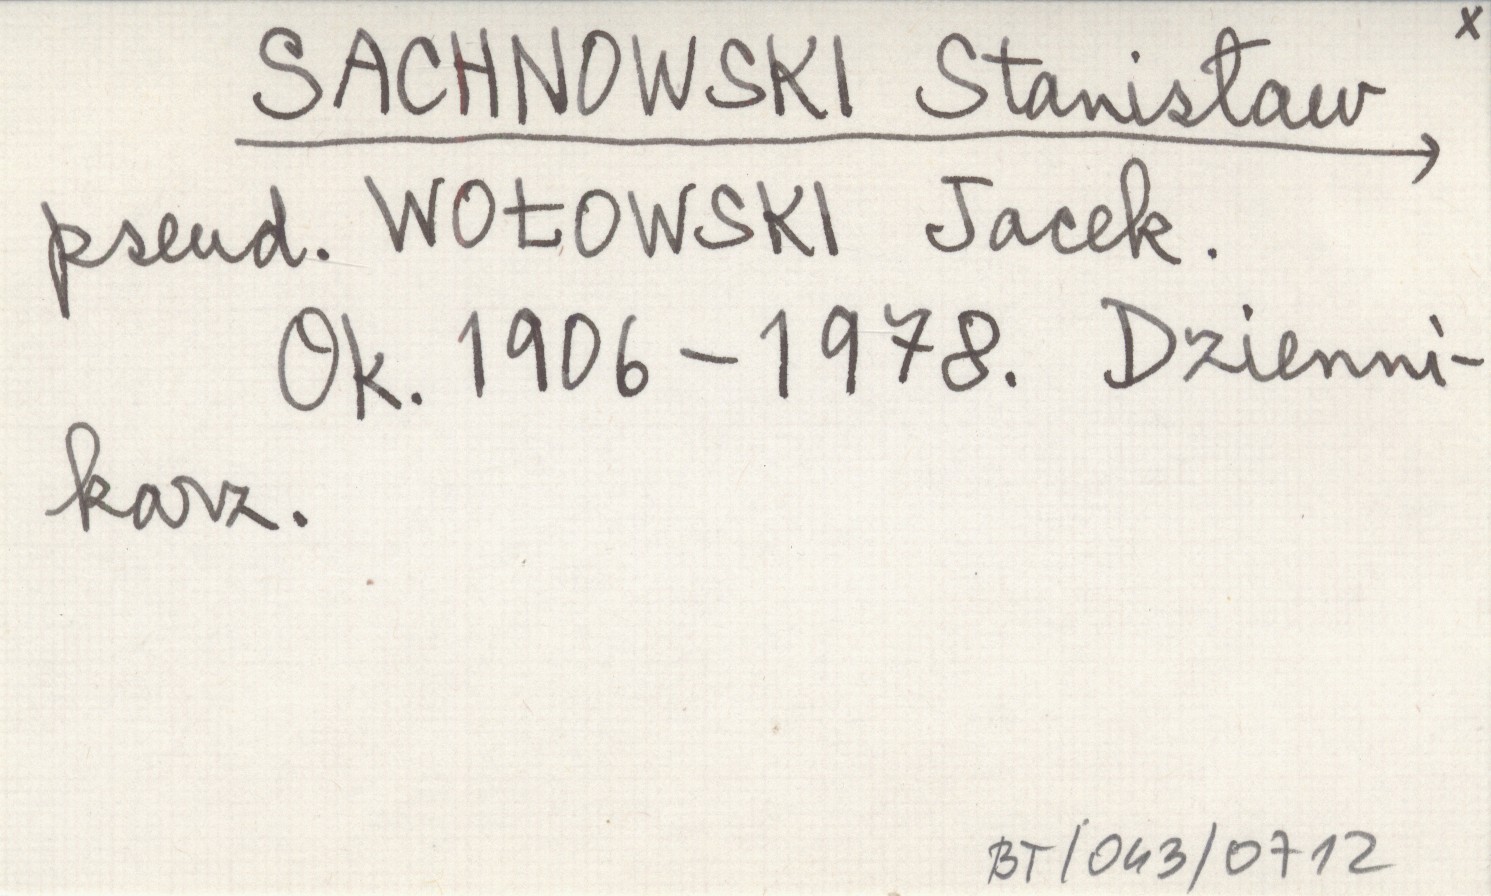 x
SACHNOWSKI Stanisław
pseud. WOŁOWSKI Jacek.
Ok. 1906-1978. Dzienni-
karz.
BT/043/0712